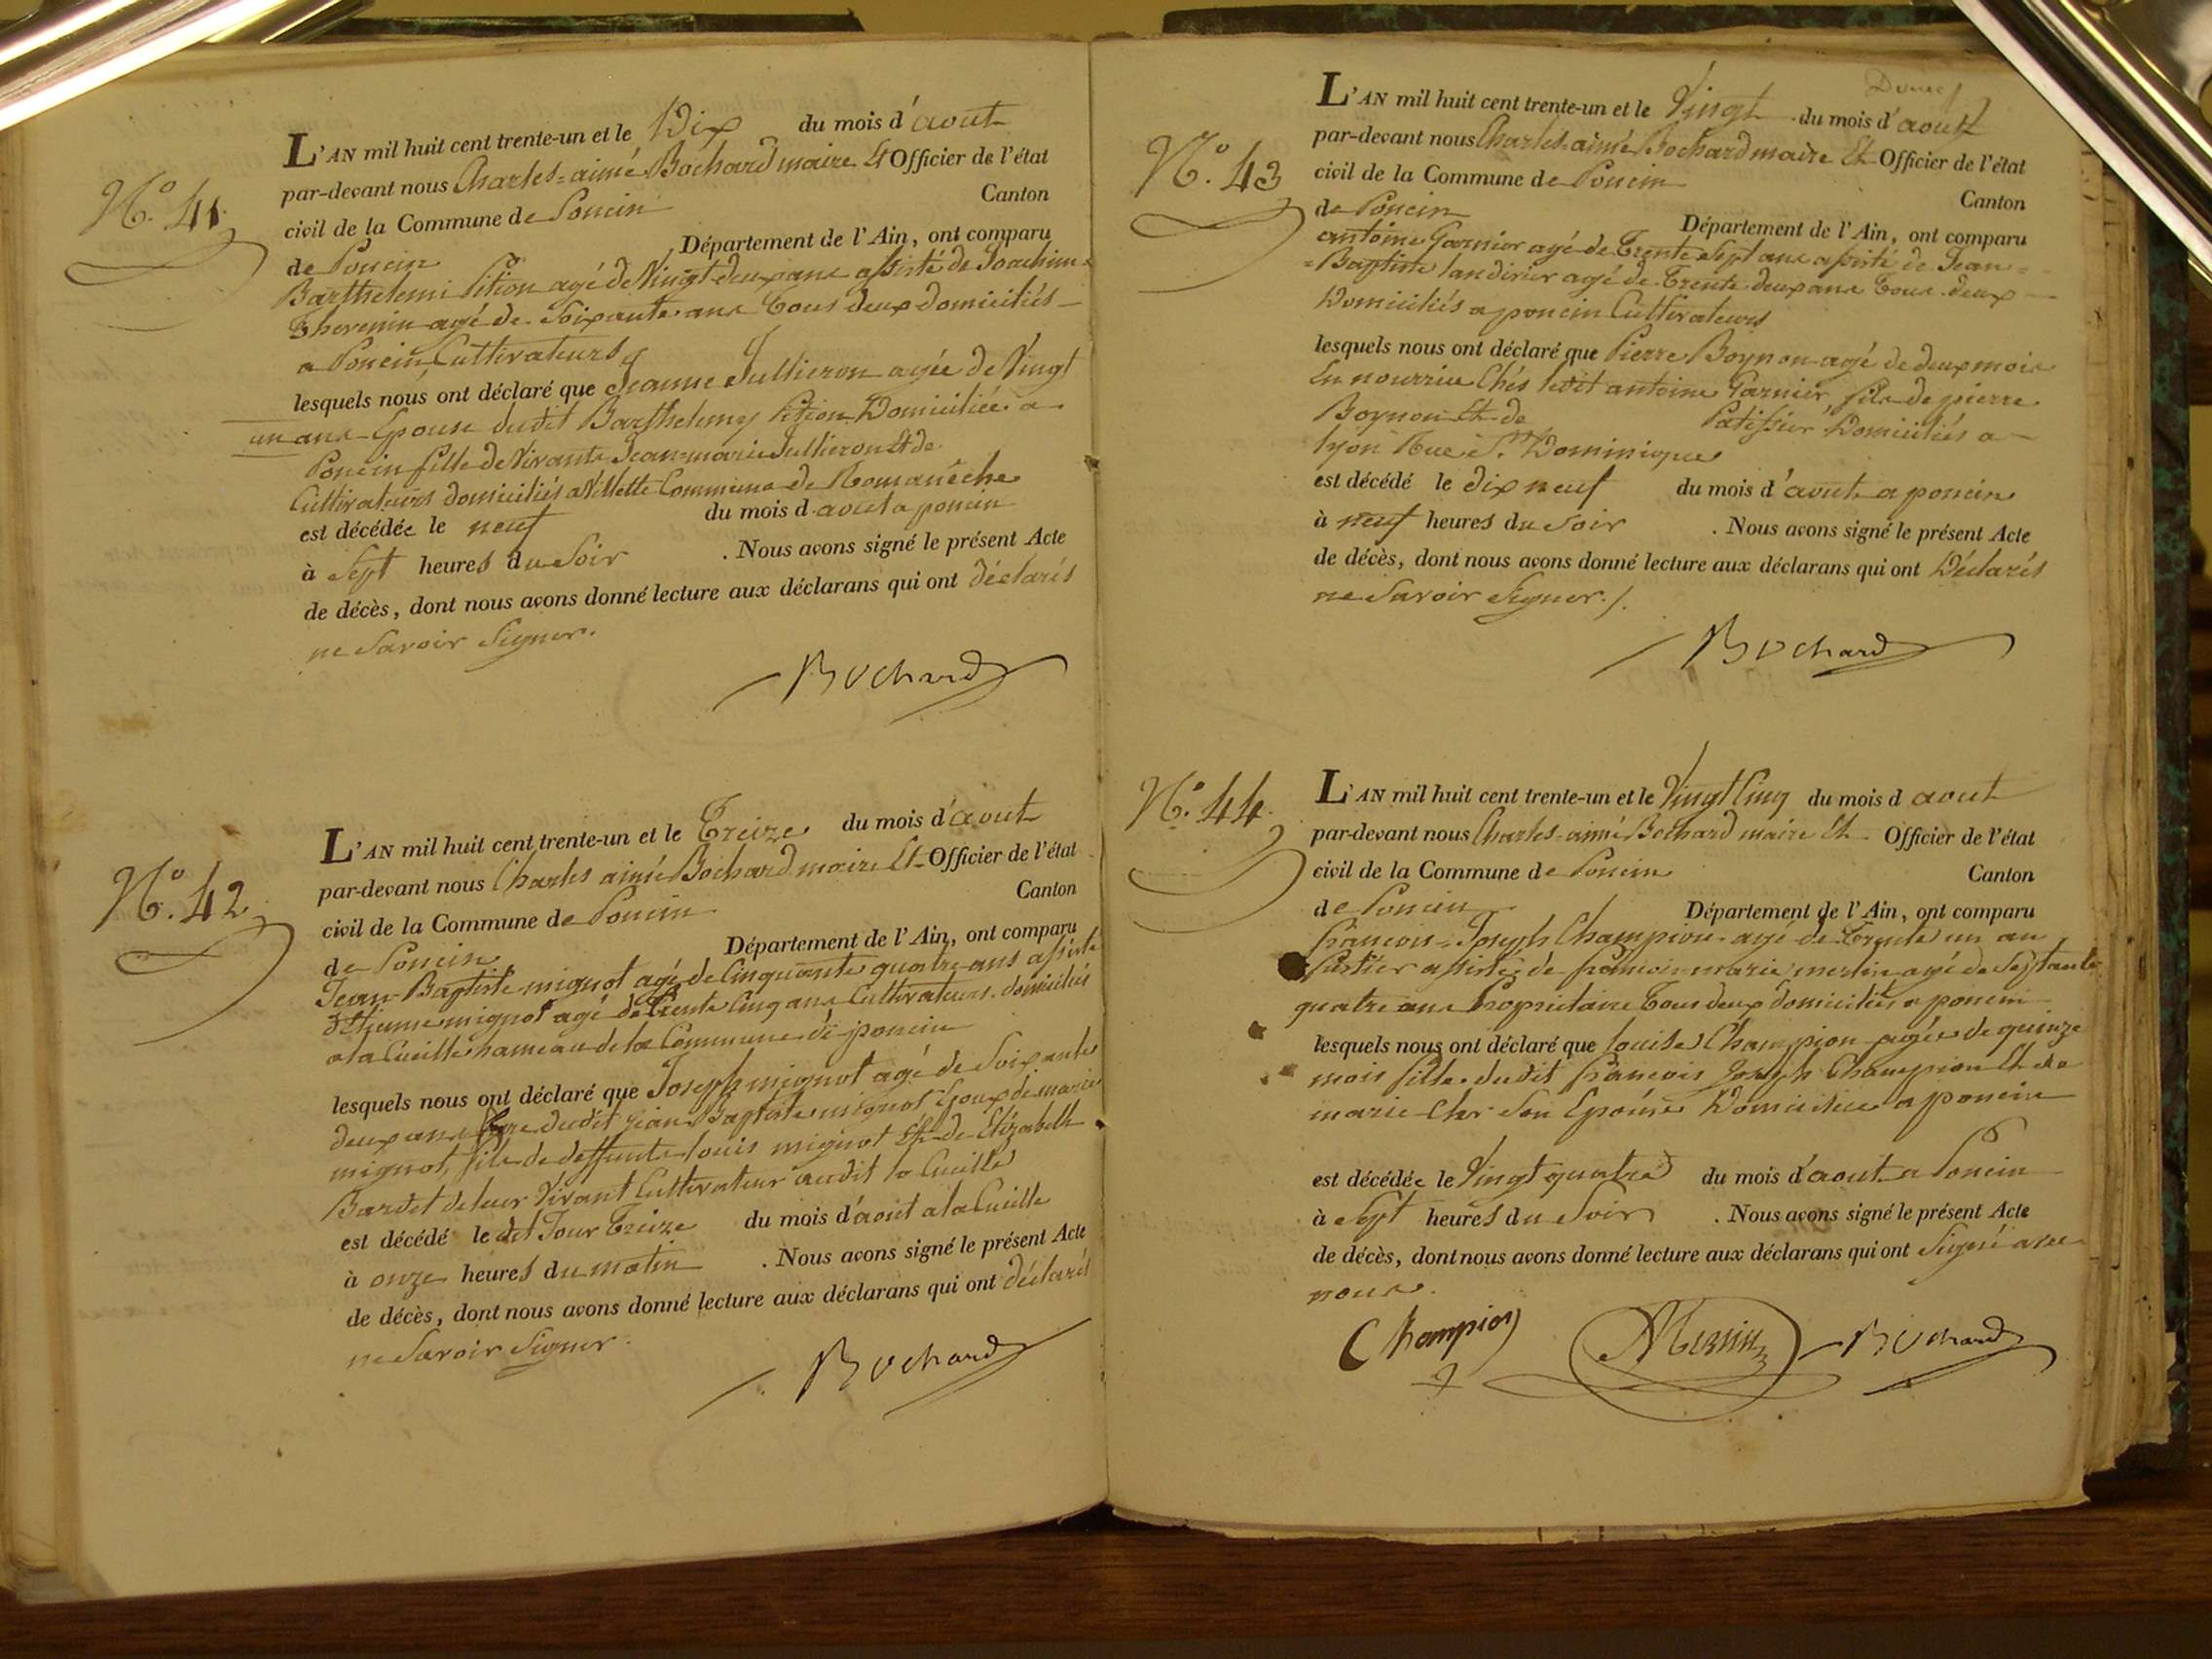 N.° 41.
L'AN mil huit cent trente-un et le Dix du mois d'aout
par-devant nous Charles-aimé Bochard maire Et Officier de l'état
civil de la Commune de Poncin Canton
de Poncin Département de l'Ain, ont comparu
Barthelemi Pition agé de Vingt deux ans assisté de Joachim
Thevenin agé de Soixante ans Tous deux Domiciliés
a Poncin Cultivateurs
lesquels nous ont déclaré que Jeanne Jullieron agée de Vingt
un ans Epouse dudit Barthelemy Pition Domiciliée a
Poncin fille de Vivants Jean-marie Jullieron Et de
Cultivateurs domiciliés a Villette Commune de Romanèche
est décédée le neuf du mois d aout a poncin
à Sept heures du Soir . Nous avons signé le présent Acte
de décès, dont nous avons donné lecture aux déclarans qui ont déclarés
ne Savoir Signer.
Bochard
N.° 42.
L'AN mil huit cent trente-un et le Treize du mois d'aout
par-devant nous Charles aimé Bochard maire Et Officier de l'état
civil de la Commune de Poncin Canton
de Poncin Département de l'Ain, ont comparu
Jean-Baptiste mignot agé de Cinquante quatre ans assisté
d'Etienne mignot agé de Trente Cinq ans Cultivateurs domiciliés
a la Cueille hameau de la Commune de poncin
lesquels nous ont déclaré que Joseph mignot agé de Soixante
deux ans frere dudit Jean Baptiste mignot Epoux de marie
mignot, fils de deffunts louis mignot Et de Elizabeth
Bardet de leur Vivant Cultivateur audit la Cueille
est décédé le dit Jour Treize du mois d'aout a la Cueille
à onze heures du matin . Nous avons signé le présent Acte
de décès, dont nous avons donné lecture aux déclarans qui ont déclarés
ne Savoir Signer.
Bochard
N.° 43
L'AN mil huit cent trente-un et le Vingt du mois d'aout
par-devant nous Charles-aimé Bochard maire Et Officier de l'état
civil de la Commune de Poncin Canton
de Poncin Département de l'Ain, ont comparu
antoine Garnier agé de Trente Sept ans assisté de Jean=
=Baptiste landirier agé de Trente deux ans Tous deux
Domiciliés a poncin Cultivateurs
lesquels nous ont déclaré que Pierre Boynon agé de deux mois
En nourrice Chés ledit antoine Garnier, fils de pierre
Boynon Et de Patissier Domiciliés a
lyon Rue S.t Dominique
est décédé le dix neuf du mois d'aout a poncin
à neuf heures du Soir . Nous avons signé le présent Acte
de décès, dont nous avons donné lecture aux déclarans qui ont Déclarés
ne Savoir Signer./.
Bochard
N.° 44.
L'AN mil huit cent trente-un et le Vingt Cinq du mois d aout
par-devant nous Charles-aimé Bochard maire Et Officier de l'état
civil de la Commune de Poncin Canton
de Poncin Département de l'Ain, ont comparu
francois-Joseph Champion agé de Trente un an
assisté de francois marie merlin agé de Septante
quatre ans Propriétaire Tous deux domiciliés a poncin
lesquels nous ont déclaré que louise Champion agée de quinze
mois fille dudit francois Joseph Champion Et de
marie Cler Son Epouse Domiciliée a poncin
est décédée le Vingt quatre du mois d'aout a Poncin
à Sept heures du Soir . Nous avons signé le présent Acte
de décès, dont nous avons donné lecture aux déclarans qui ont Signé avec
nous.
Champion Merlin Bochard